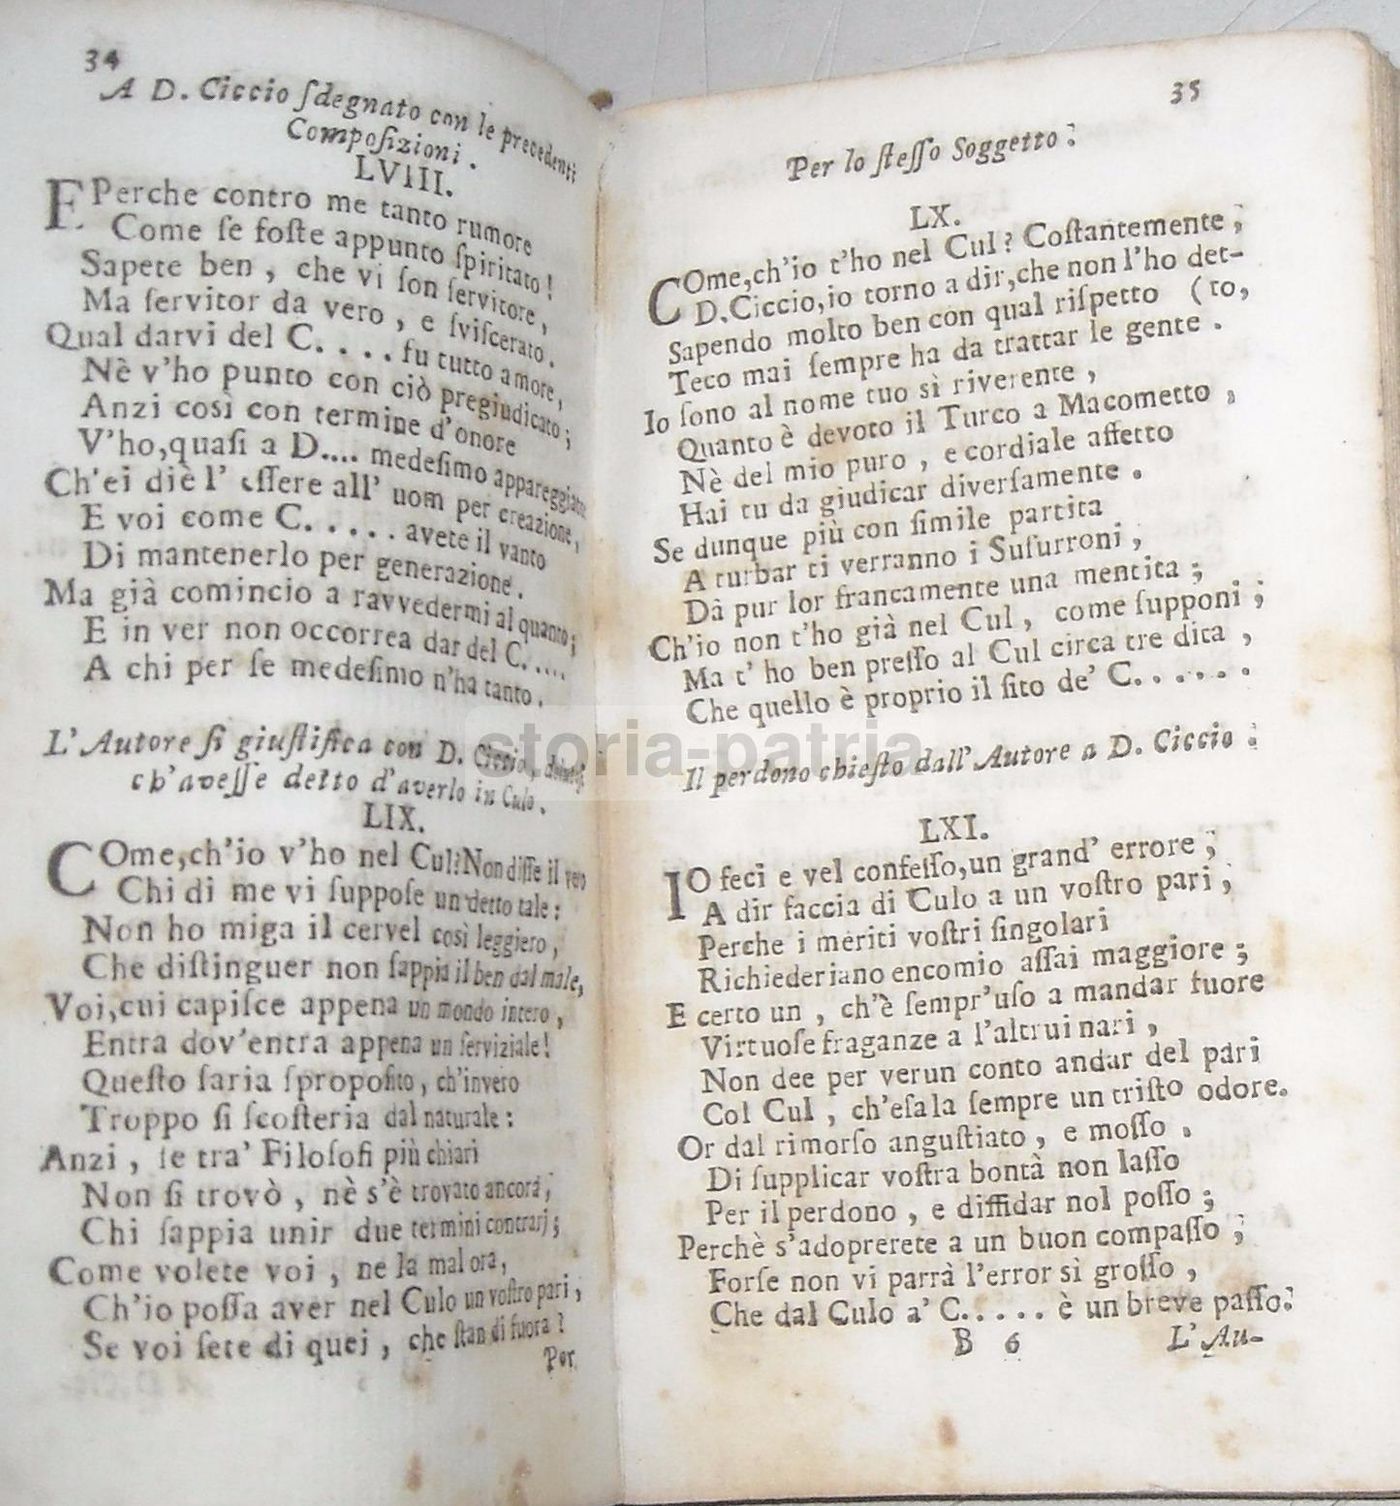 34
A D. Ciccio ſdegnato con le precedenti
Compoſizioni.
LVIII.
E Perche contro me tanto rumore
Come ſe foſte appunto ſpiritato!
Sapete ben, che vi ſon ſervitore,
Ma ſervitor da vero, e ſviſcerato.
Qual darvi del C.... fu tutto amore,
Nè v'ho punto con ciò pregiudicato;
Anzi così con termine d'onore
V'ho, quaſi a D.... medeſimo appareggiato
Ch'ei diè l' eſſere all' uom per creazione,
E voi come C..... avete il vanto
Di mantenerlo per generazione.
Ma già comincio a ravvedermi al quanto;
E in ver non occorrea dar del C.....
A chi per ſe medeſimo n'ha tanto.
L'Autore ſi giuſtifica con D. Ciccio,
ch'aveſſe detto d'averlo in Culo.
LIX.
COme, ch'io v'ho nel Cul? Non diſſe il vero
Chi di me vi ſuppoſe un detto tale:
Non ho miga il cervel così leggiero,
Che diſtinguer non ſappia il ben dal male,
Voi, cui capiſce appena un mondo intero,
Entra dov'entra appena un ſerviziale!
Queſto ſaria ſpropoſito, ch'invero
Troppo ſi ſcoſteria dal naturale:
Anzi, ſe tra' Filoſofi più chiari
Non ſi trovò, nè s'è trovato ancora,
Chi ſappia unir due termini contrarj;
Come volete voi, ne la mal ora,
Ch'io poſſa aver nel Culo un voſtro pari,
Se voi ſete di quei, che ſtan di fuora?
Per
35
Per lo ſteſſo Soggetto:
LX.
COme, ch'io t'ho nel Cul? Coſtantemente;
D. Ciccio, io torno a dir, che non l'ho det-
Sapendo molto ben con qual riſpetto (to,
Teco mai ſempre ha da trattar le gente.
Io ſono al nome tuo sì riverente,
Quanto è devoto il Turco a Macometto,
Nè del mio puro, e cordiale affetto
Hai tu da giudicar diverſamente.
Se dunque più con ſimile partita
A turbar ti verranno i Suſurroni,
Dà pur lor francamente una mentita;
Ch'io non t'ho già nel Cul, come ſupponi;
Ma t' ho ben preſſo al Cul circa tre dita,
Che quello è proprio il ſito de' C......
Il perdono chieſto dall' Autore a D. Ciccio:
LXI.
IO feci e vel confeſſo, un grand' errore;
A dir faccia di Culo a un voſtro pari,
Perche i meriti voſtri ſingolari
Richiederiano encomio aſſai maggiore;
E certo un, ch'è ſempr'uſo a mandar fuore
Virtuoſe fraganze a l'altrui nari,
Non dee per verun conto andar del pari
Col Cul, ch'eſala ſempre un triſto odore.
Or dal rimorſo anguſtiato, e moſſo,
Di ſupplicar voſtra bontà non laſſo
Per il perdono, e diffidar nol poſſo;
Perchè s'adoprerete a un buon compaſſo;
Forſe non vi parrà l'error sì groſſo,
Che dal Culo a' C..... è un breve paſſo:
B 6
L'Au-
storia-patria